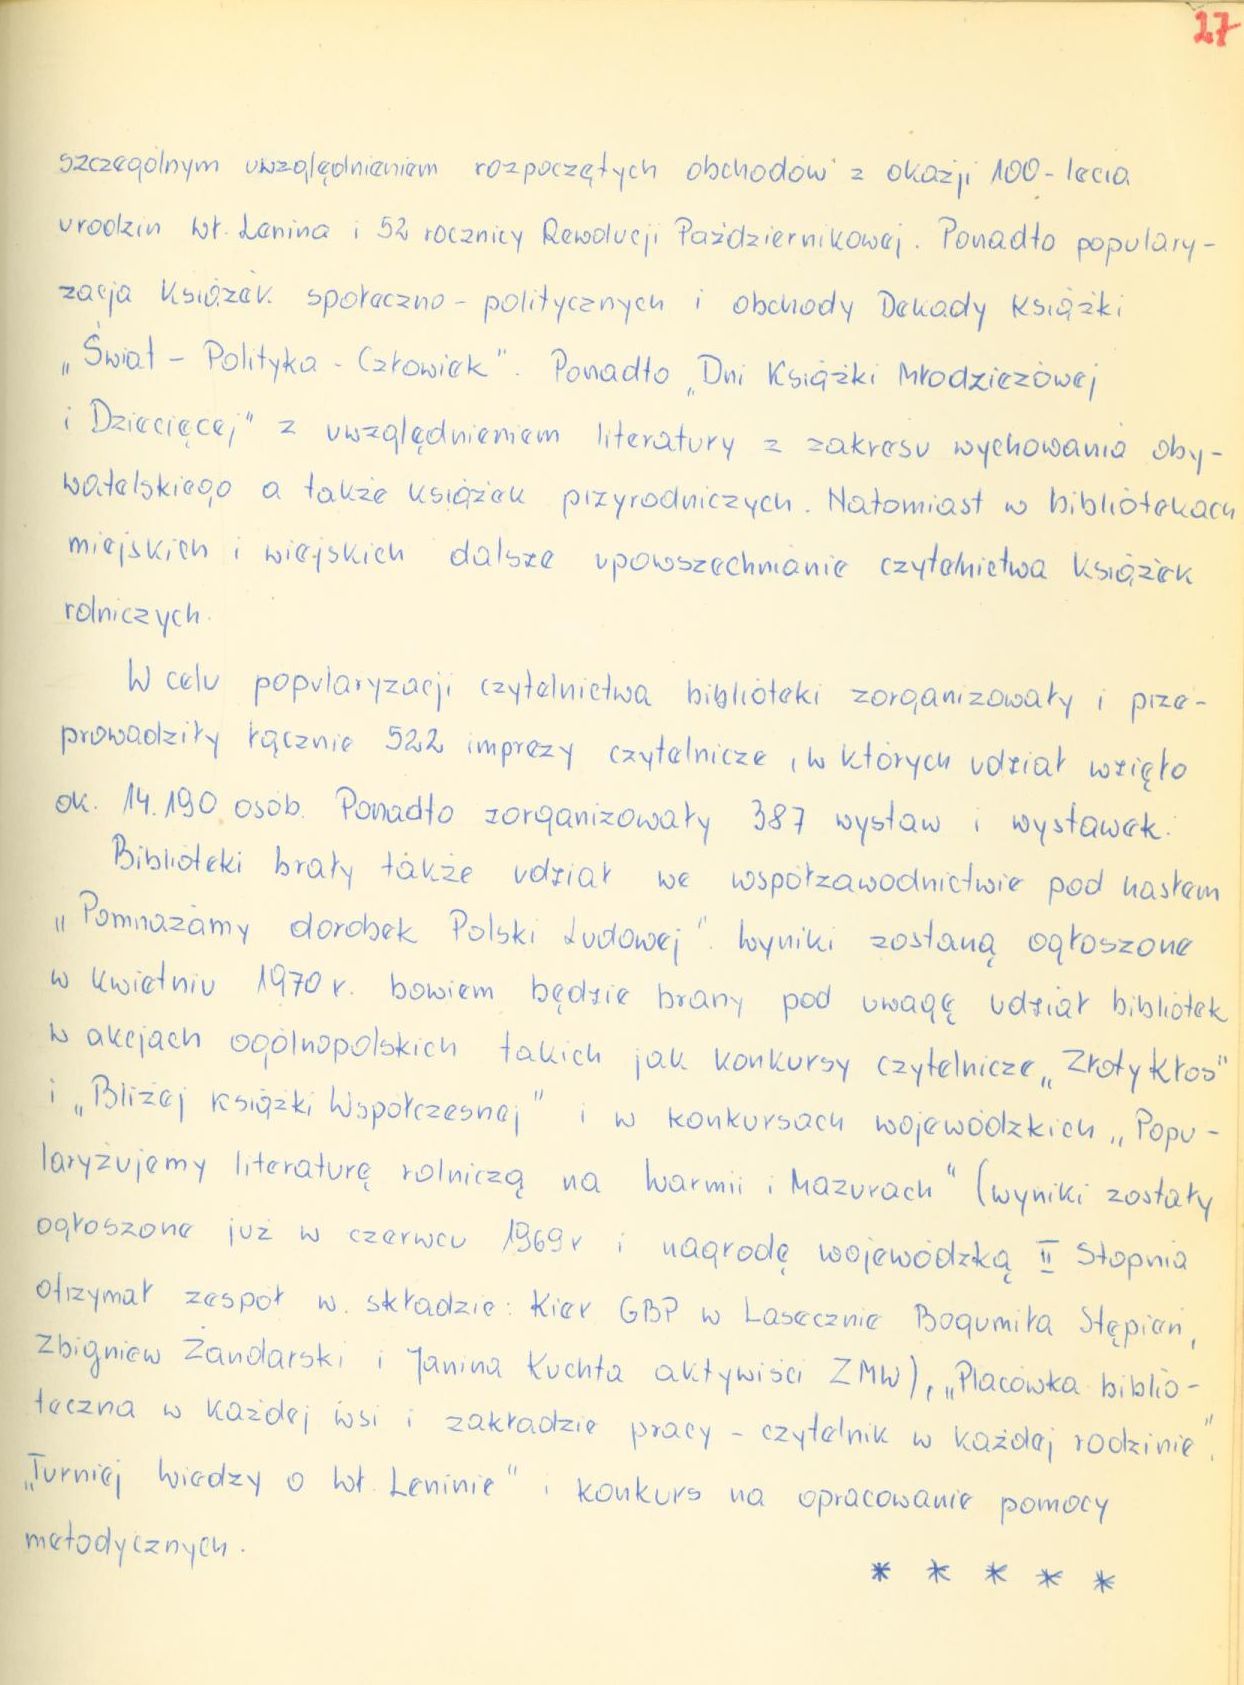 27
szczególnym uwzględnieniem rozpoczętych obchodów z okazji 100-lecia
urodzin Wł. Lenina i 52 rocznicy Rewolucji Październikowej. Ponadto populary-
zacja książek społeczno - politycznych i obchody Dekady Książki
„Świat - Polityka - Człowiek". Ponadto „Dni Książki Młodzieżowej
i Dziecięcej" z uwzględnieniem literatury z zakresu wychowania oby-
watelskiego a także książek przyrodniczych. Natomiast w bibliotekach
miejskich i wiejskich dalsze upowszechnianie czytelnictwa książek
rolniczych.
W celu popularyzacji czytelnictwa biblioteki zorganizowały i prze-
prowadziły łącznie 522 imprezy czytelnicze, w których udział wzięło
ok. 14.190 osób. Ponadto zorganizowały 387 wystaw i wystawek.
Biblioteki brały także udział we współzawodnictwie pod hasłem
„Pomnażamy dorobek Polski Ludowej". Wyniki zostaną ogłoszone
w kwietniu 1970 r. bowiem będzie brany pod uwagę udział bibliotek
w akcjach ogólnopolskich takich jak konkursy czytelnicze „Złoty Kłos"
i „Bliżej książki Współczesnej" i w konkursach wojewódzkich „Popu-
laryzujemy literaturę rolniczą na Warmii i Mazurach" (wyniki zostały
ogłoszone już w czerwcu 1969 r i nagrodę wojewódzką II Stopnia
otrzymał zespół w. składzie: Kier GBP w Lasecznie Bogumiła Stępień,
Zbigniew Żandarski i Janina Kuchta aktywiści ZMW), „Placówka biblio-
teczna w każdej wsi i zakładzie pracy - czytelnik w każdej rodzinie".
„Turniej Wiedzy o Wł. Leninie" i konkurs na opracowanie pomocy
metodycznych.
* * * * *